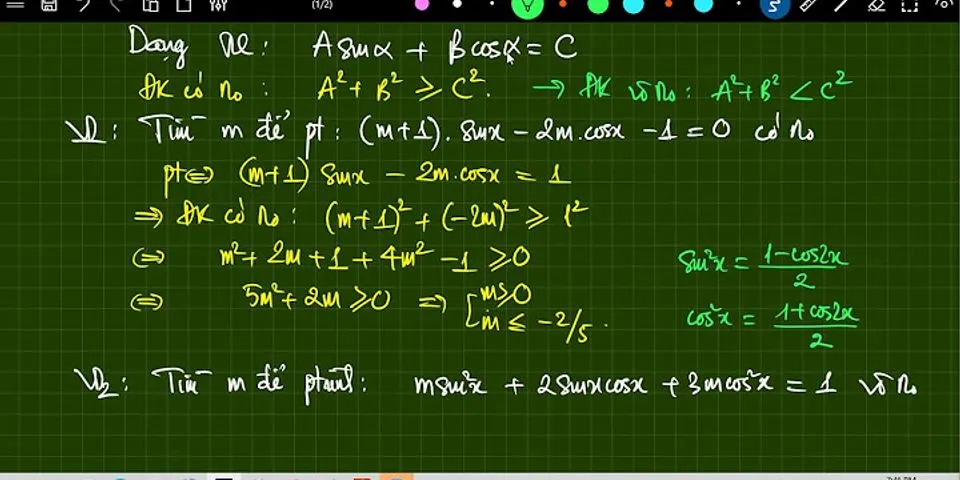 (1/2)
Dạng 2: Asinα + Bcosα = C
ĐK có no: A² + B² ≥ C². → ĐK vô no: A² + B² < C²
VD: Tìm m để pt: (m+1).sinx - 2m.cosx - 1 = 0 có no
pt ⇔ (m+1) sinx - 2m.cosx = 1
⇒ ĐK có no: (m+1)² + (-2m)² ≥ 1²
⇔ m² + 2m + 1 + 4m² - 1 ≥ 0
sin²x = (1-cos2x)/2
⇔ 5m² + 2m ≥ 0 ⇒ [ m ≥ 0
m ≤ -2/5.
cos²x = (1+cos2x)/2
VD2: Tìm m để ptrình: msin²x + 2sinxcosx + 3mcos²x = 1 vô no